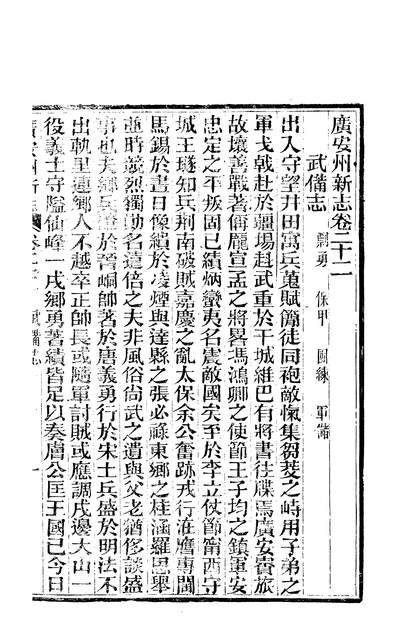 廣安州新志卷二十二
武備志 鄉勇 保甲 團練 軍需
出入守望井田寓兵蒐賦簡徒同袍敵愾集芻茭之峙用子弟之
軍戈戟赴於疆場赳武重於干城維巴有將書往牒焉廣安賨旅
故壤善戰著偁龎宣孟之將畧馮鴻卿之使節王子均之鎮軍安
忠定之平叛固已績炳蠻夷名震敵國矣至於李立仗節甯西守
城王璲知兵荆南破賊嘉慶之亂太保余公奮跡戎行淮鷹專閫
馬錫於書日像繢於凌煙與達縣之張必祿東鄉之桂涵羅思舉
並時競烈獨勤名這倍之夫非風俗尚武之遺與父老猶侈談盛
事也夫鄉兵證於晉峒帥著於唐義勇行於宋土兵盛於明法不
出軌里連鄉人不越卒正師長或隨軍討賊或應調戍邊大山一
役義士守隘仙峰一戍鄉勇著績皆足以奏膚公匡王國已今日
廣安州新志 卷二十二 武備志 一